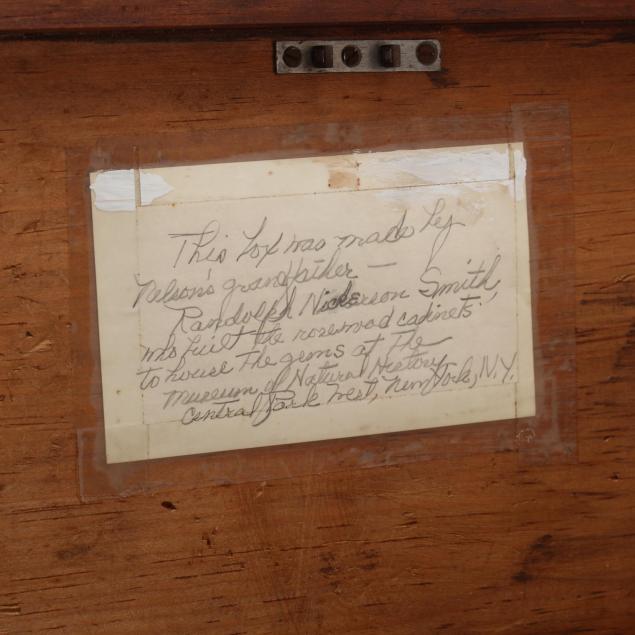 This box was made by
Nelson's grandfather —
Randolph Nickerson Smith,
who built the rosewood cabinets
to house the gems at the
Museum of Natural History
Central Park West, New York, N.Y.